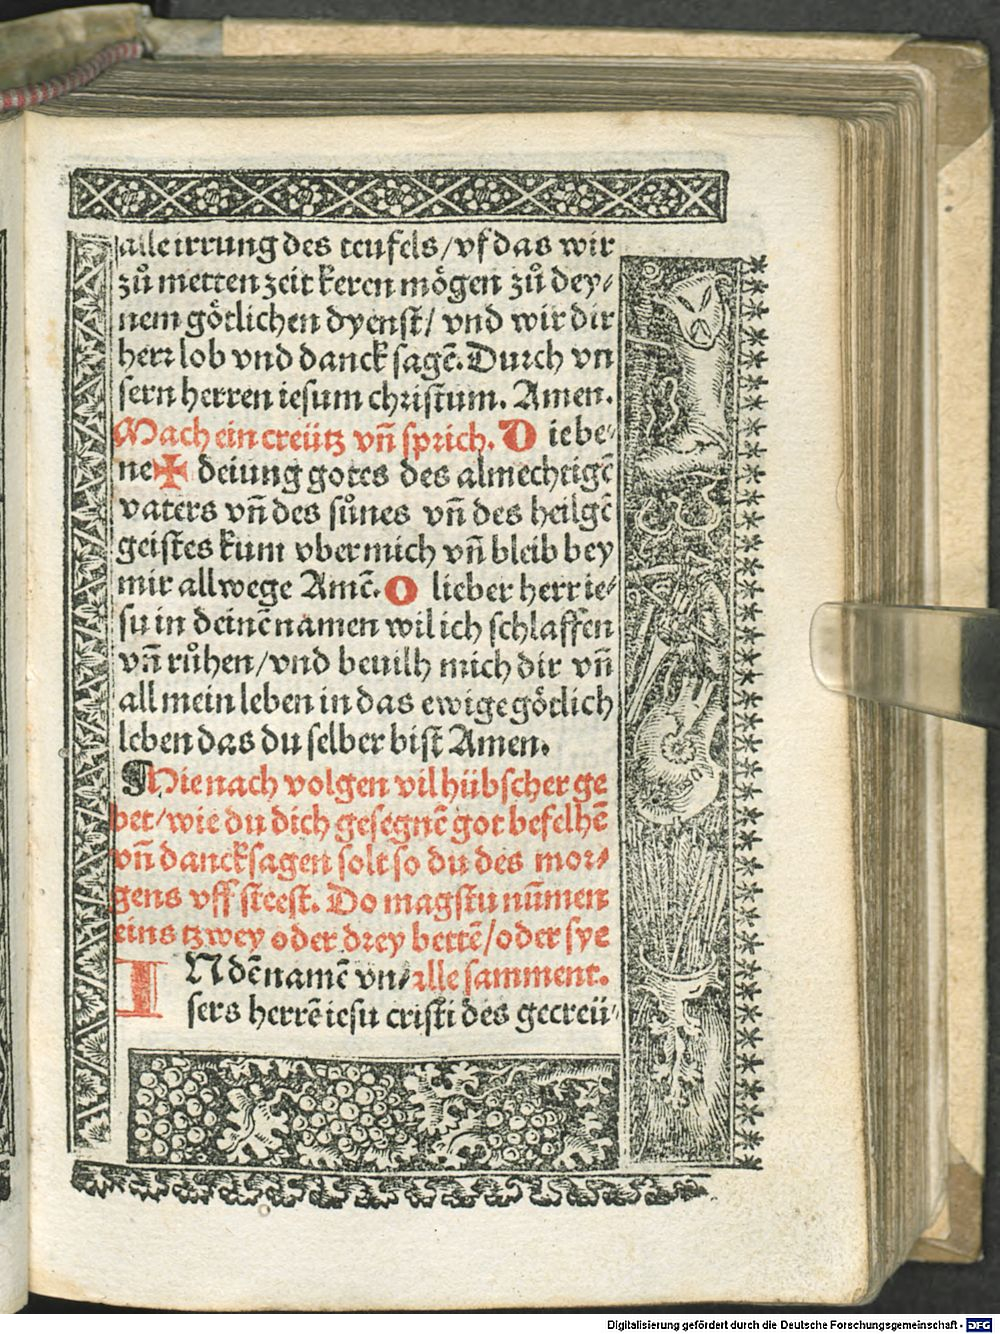 alle irrung des teufels/vf das wir
zů metten zeit keren mögen zů dey⸗
nem götlichen dyenst/ vnd wir dir
herr lob vnd danck sagē. Durch vn
sern herren iesum christum. Amen.
Mach ein creütz vn̄ sprich. D ie be⸗
ne ✠ deiung gotes des almechtigē
vaters vn̄ des sůnes vn̄ des heilgē
geistes kum vber mich vn̄ bleib bey
mir allwege Amē. O lieber herr ie⸗
su in deinē namen wil ich schlaffen
vn̄ růhen/vnd beuilh mich dir vn̄
all mein leben in das ewige götlich
leben das du selber bist Amen.
Hie nach volgen vil hübscher ge
bet/wie du dich gesegnē got befelhē
vn̄ dancksagen solt so du des mor⸗
gens vff steest. Do magstu nūmen
eins tzwey oder drey bettē/oder sye
IN dē namē vn⸗ alle samment.
sers herrē iesu cristi des gecreü⸗
Digitalisierung gefördert durch die Deutsche Forschungsgemeinschaft - DFG